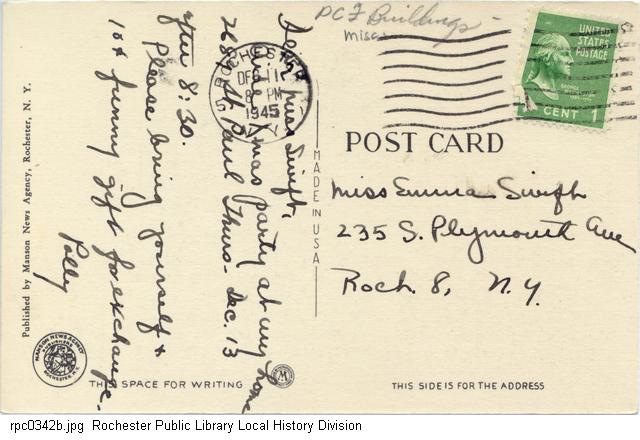 PCF Buildings -
Misc.
ROCHESTER
DEC 11
8 PM
1945
N.Y.
UNITED
STATES
POSTAGE
1 CENT 1
POST CARD
Dear Miss Swift,
Xmas party at my home
268 St. Paul Thurs- Dec. 13
after 8:30.
Please bring yourself &
10¢ funny gift for exchange.
Polly
MADE IN USA
Miss Emma Swift
235 S. Plymouth Ave
Roch. 8, N.Y.
Published by Manson News Agency, Rochester, N. Y.
MANSON NEWS AGENCY
PUBLISHERS
ROCHESTER, N.Y.
M
THIS SPACE FOR WRITING
THIS SIDE IS FOR THE ADDRESS
rpc0342b.jpg Rochester Public Library Local History Division